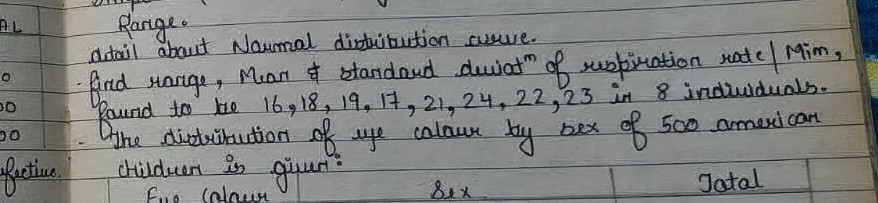 AL
Range.
detail about Naurmal distribution curve.
0
find range, Mean & standard deviatⁿ of respiration rate/Mim,
00
found to be 16, 18, 19, 17, 21, 24, 22, 23 in 8 individuals.
00
The distribution of eye colour by sex of 500 american
children is given:
Eye Colour Sex Total